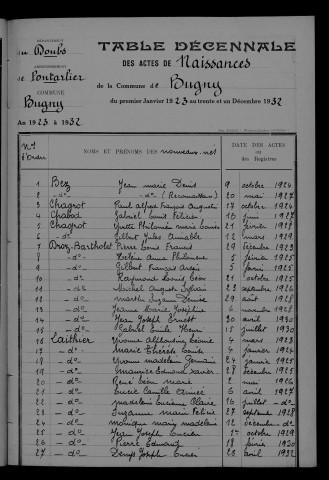 DÉPARTEMENT
du Doubs
ARRONDISSEMENT
de Pontarlier
COMMUNE
Bugny
An 1923 à 1932
TABLE DÉCENNALE
DES ACTES DE Naissances
de la Commune de Bugny
du premier Janvier 1923 au trente et un Décembre 1932
Nos d'Ordre
NOMS ET PRÉNOMS DES nouveaux-nés
DATE DES ACTES
ou des Registres
1 Bez Jean marie Denis 9 octobre 1924
2 -do- -do- (Reconnaissance) 20 mai 1927
3 Chagrot Paul Alfred François Augustin 17 octobre 1924
4 Chabod Gabriel Louis Félicien 16 juin 1927
5 Chagrot Yvette Philomène Marie Louise 21 février 1928
6 -do- Gilbert Jules Aimable 12 mars 1929
7 Droz-Bartholet Pierre Louis Francis 29 décembre 1923
8 -do- Hélène Anna Philomène 5 février 1925
9 -do- Gilbert François 5 février 1925
10 -do- Raymond Louis Léon 21 octobre 1925
11 -do- Michel Auguste Sylvain 23 septembre 1926
12 -do- Marthe Suzanne Denise 29 août 1928
13 -do- Jeanne Marie Joséphine 6 novembre 1928
14 -do- Jean Joseph Ernest 30 avril 1930
15 -do- Gabriel Emile Henri 15 juillet 1930
16 Laithier Yvonne 4 mars 1923
17 -do- Marie Thérèse Louise 7 janvier 1924
18 -do- Yvonne madeleine Germaine 24 janvier 1925
19 -do- Maurice Edmond Xavier 28 décembre 1925
20 -do- René Léon Marie 2 mai 1926
21 -do- Lucie Camille Aimée 6 avril 1927
22 -do- Madeleine Lucienne Claire 16 juillet -do-
23 -do- Suzanne Marie Félicie 27 septembre 1928
24 -do- Monique Marie Madeleine 12 décembre -do-
25 -do- Jean Joseph Lucien 1er octobre 1929
26 -do- Pierre Edmond 18 février 1930
27 -do- Denys Joseph 23 avril 1932